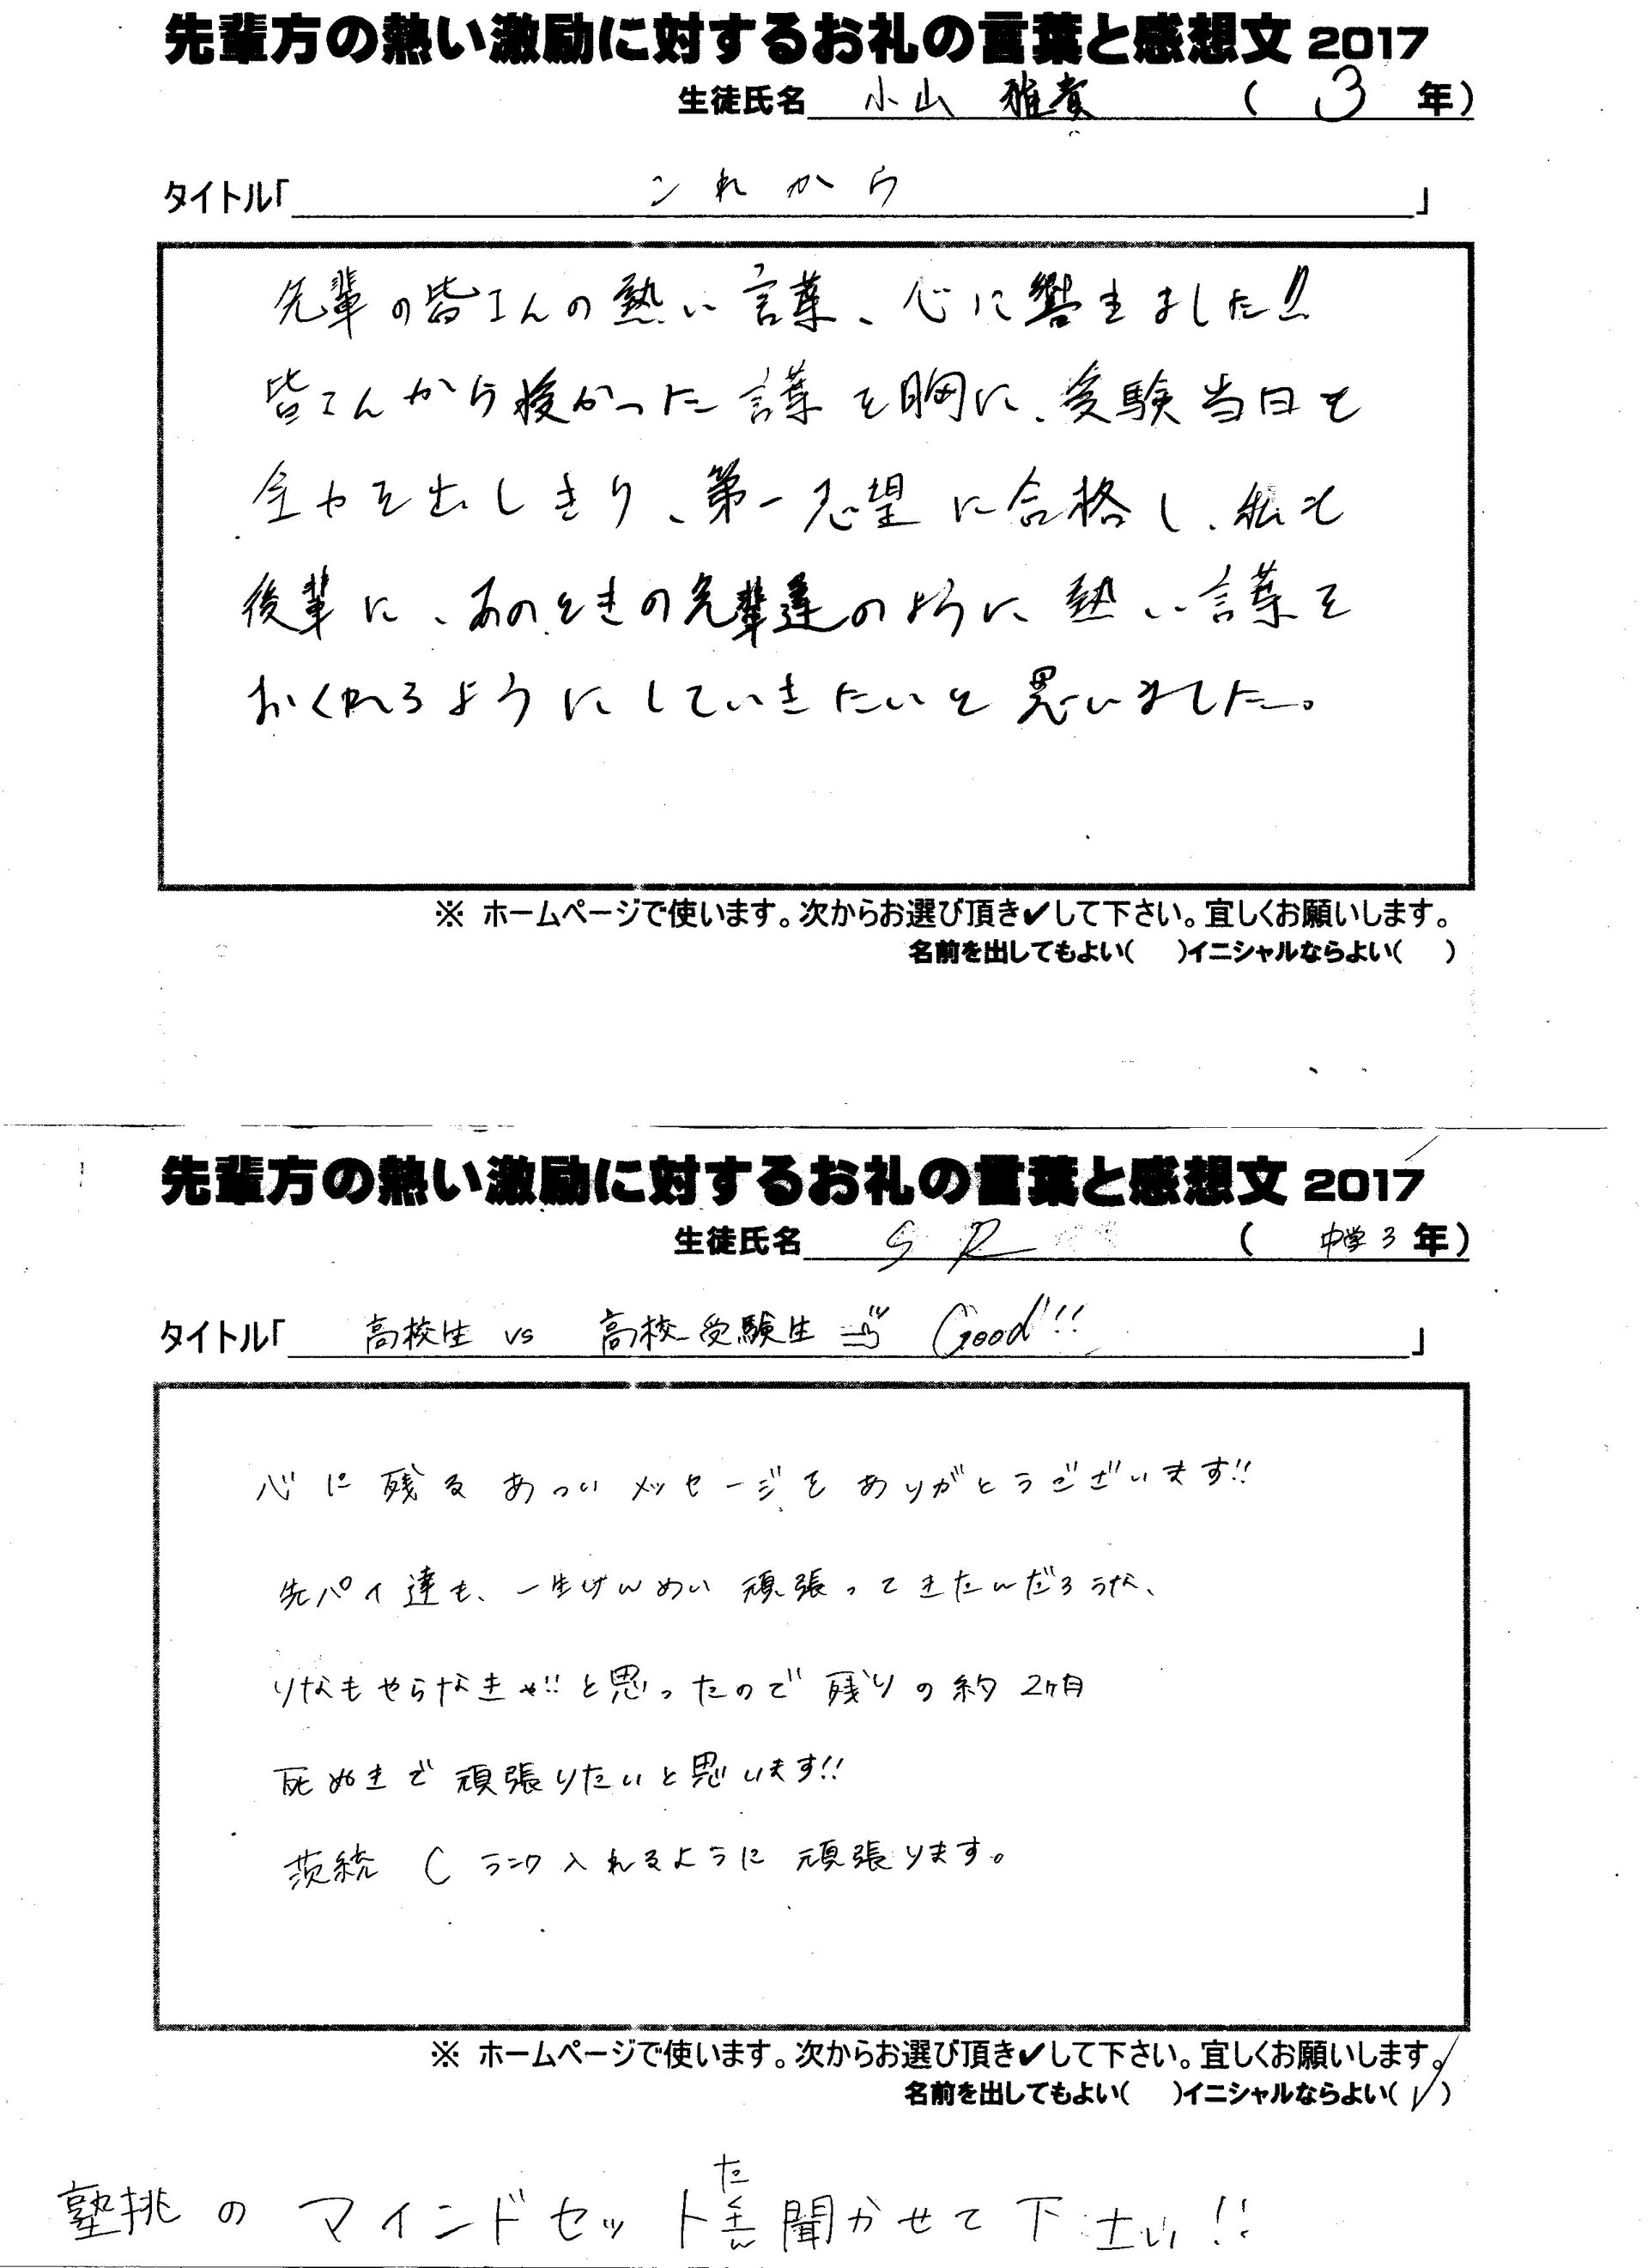 先輩方の熱い激励に対するお礼の言葉と感想文 2017
生徒氏名 小山 雅貴 ( 3 年)
タイトル「 これから 」
先輩の皆さんの熱い言葉、心に響きました!!
皆さんから授かった言葉を胸に、受験当日も
全力を出しきり、第一志望に合格し、私も
後輩に、あのときの先輩達のように熱い言葉を
おくれるようにしていきたいと思いました。
※ ホームページで使います。次からお選び頂き✔して下さい。宜しくお願いします。
名前を出してもよい( )イニシャルならよい( )
先輩方の熱い激励に対するお礼の言葉と感想文 2017
生徒氏名 S R ( 中学3 年)
タイトル「 高校生 vs 高校受験生 Good!! 」
心に残るあついメッセージをありがとうございます!!
先パイ達も、一生けんめい頑張ってきたんだろうな、
りなもやらなきゃ!!と思ったので残りの約2ヶ月
死ぬまで頑張りたいと思います!!
茨統 Cランク入れるように頑張ります。
※ ホームページで使います。次からお選び頂き✔して下さい。宜しくお願いします。
名前を出してもよい( )イニシャルならよい( ✓ )
塾挑のマインドセットたくさん聞かせて下さい!!